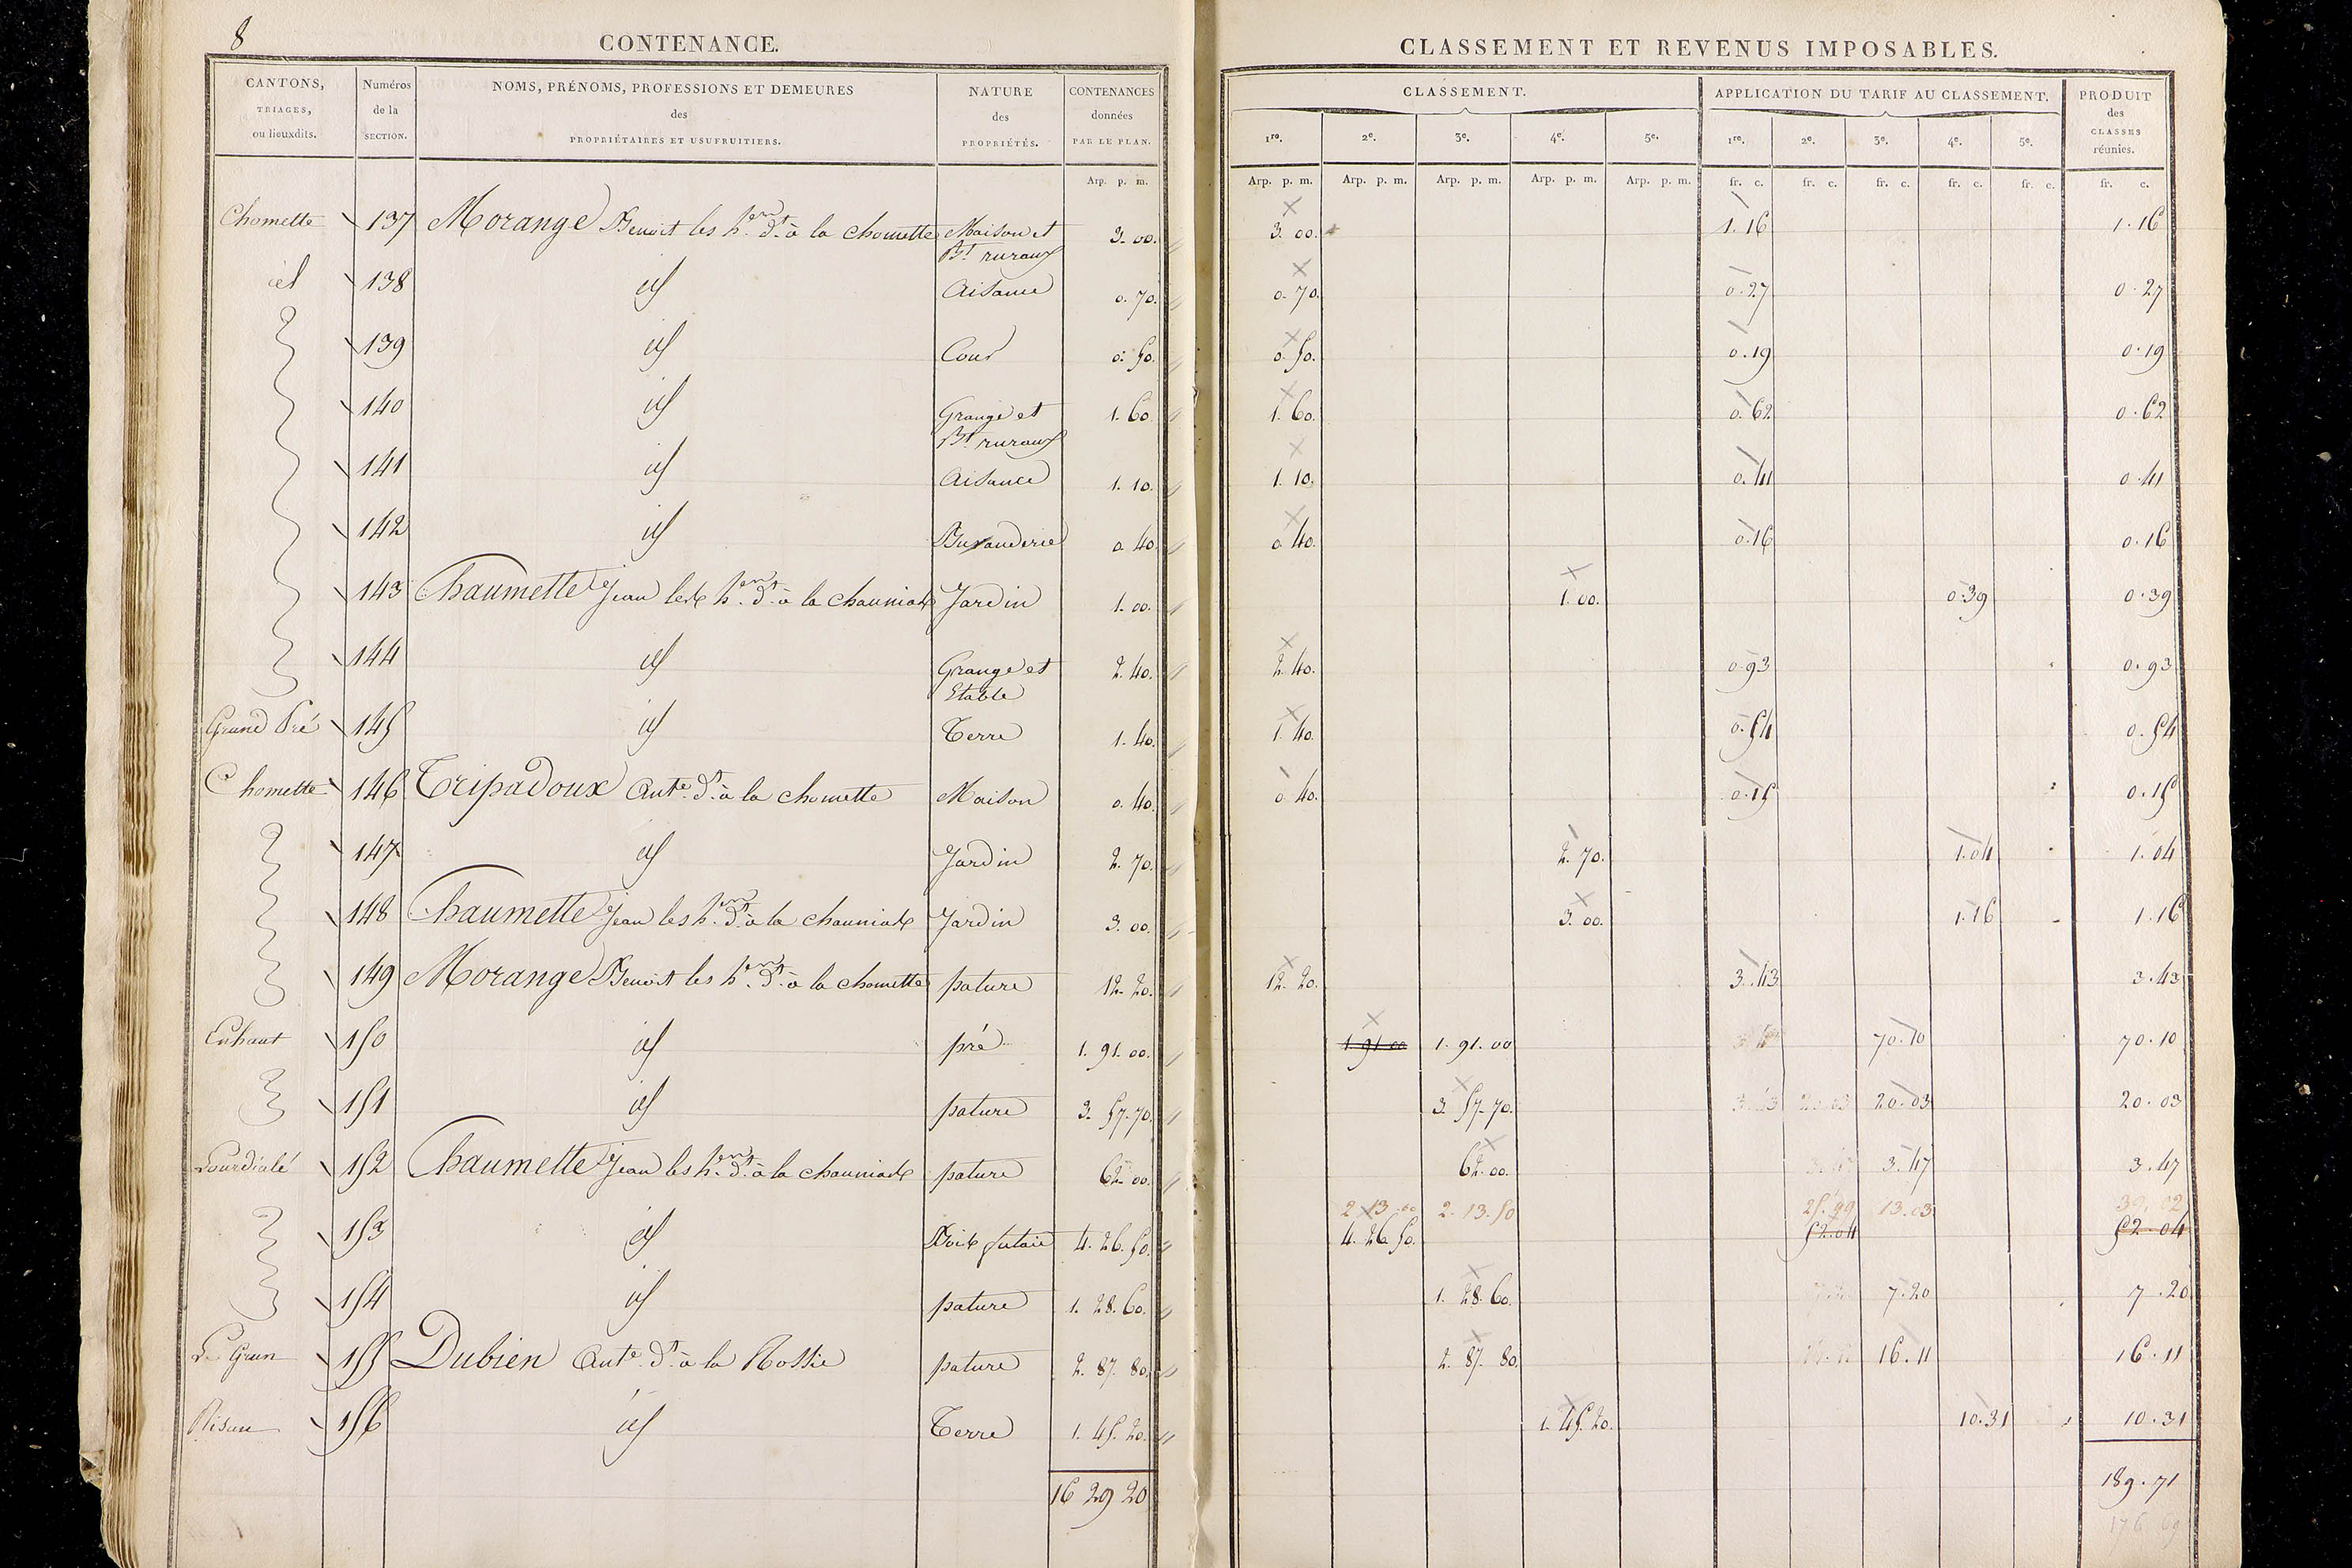 8
CONTENANCE.
CLASSEMENT ET REVENUS IMPOSABLES.
CANTONS, TRIAGES, ou lieuxdits.
Numéros de la SECTION.
NOMS, PRÉNOMS, PROFESSIONS ET DEMEURES des PROPRIÉTAIRES ET USUFRUITIERS.
NATURE des PROPRIÉTÉS.
CONTENANCES données PAR LE PLAN.
CLASSEMENT.
APPLICATION DU TARIF AU CLASSEMENT.
PRODUIT des CLASSES réunies.
1re. 2e. 3e. 4e. 5e. 1re. 2e. 3e. 4e. 5e.
Arp. p. m. Arp. p. m. Arp. p. m. Arp. p. m. Arp. p. m. Arp. p. m. fr. c. fr. c. fr. c. fr. c. fr. c. fr. c.
Chomette 137 Morange Benoit les hers dt à la chomette Maison et 3. 00. 3. 00. 1. 16 1. 16
Bt ruraux
id 138 id Aisance 0. 70. 0. 70. 0. 27 0. 27
139 id Cour 0. 50. 0. 50. 0. 19 0. 19
140 id Grange et 1. 60 1. 60. 0. 62 0. 62
Bt ruraux
141 id Aisance 1. 10. 1. 10. 0. 41 0. 41
142 id Buanderie 0. 40. 0. 40. 0. 16 0. 16
143 Chaumette Jean les hers dt à la Jardin 1. 00. 1. 00. 0. 39 0. 39
144 id Grange et 2. 40. 2. 40. 0. 93 0. 93
Etable
Grand Pré 145 id Terre 1. 40. 1. 40. 0. 54 0. 54
Chomette 146 Tripadoux Ante dt à la chomette Maison 0. 40. 0. 40. 0. 15 0. 15
147 id Jardin 2. 70. 2. 70. 1. 04 1. 04
148 Chaumette Jean les hers dt à la Jardin 3. 00. 3. 00. 1. 16 1. 16
149 Morange Benoit les hers dt à la chomette pature 12. 20. 12. 20. 3. 43 3. 43
Enhaut 150 id pré 1. 91. 00. 1. 91. 00 1. 91. 00 70. 10 70. 10
151 id pature 3. 57. 70. 3. 57. 70. 20. 03 20. 03 20. 03
152 Chaumette Jean les hers dt à la pature 62. 00. 62. 00. 3. 47 3. 47 3. 47
2. 13. 00 2. 13. 50 25. 99 13. 03 39. 02
153 id Bois futaie 4. 26. 50. 4. 26. 50. 52. 04 52. 04
154 id pature 1. 28. 60. 1. 28. 60. 7. 20 7. 20
155 Dubien Ante dt à la pature 2. 87. 80. 2. 87. 80. 16. 11 16. 11
156 id Terre 1. 45. 20. 1. 45. 20. 10. 31 10. 31
16 29 20 189. 71